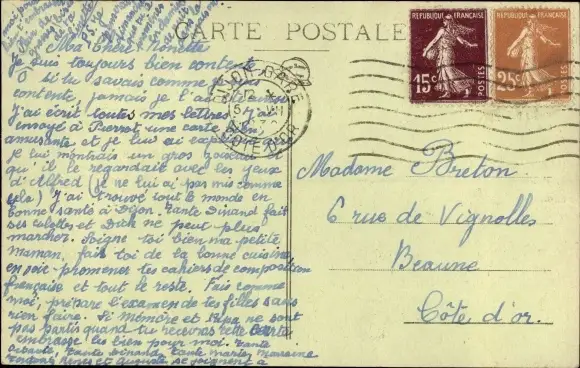 CARTE POSTALE
REPUBLIQUE FRANÇAISE
15c
POSTES
REPUBLIQUE FRANÇAISE
25c
POSTES
DIJON GARE
CÔTE D'OR
Ma Chère Ninette
je suis toujours bien contente
O si tu savais comme je suis
contente, jamais je l'ai
J'ai écrit toutes mes lettres. J'ai
envoyé à Pierrot une carte bien
amusante et je lui ai
je lui montrais un gros
qu'il le regardait avec les yeux
d'Alfred (je ne lui ai pas mis comme
cela) J'ai trouvé tout le monde en
bonne santé à Dijon. Tante Dinand fait
ses culottes et Dick ne peut plus
marcher. Soigne toi bien ma petite
Maman, fais toi de la bonne cuisine,
envoie promener tes cahiers de composition
française et tout le reste. Fais comme
moi, prépare l'examen de tes filles sans
rien faire. Si Mémère et Pépa ne sont
pas partis quand tu recevras cette carte
embrasse les bien pour moi. Tante
tante Dinand, tante Marie, Marraine
et Auguste se joignent à
Madame Breton
6 rue de Vignolles
Beaune
Côte d'or.